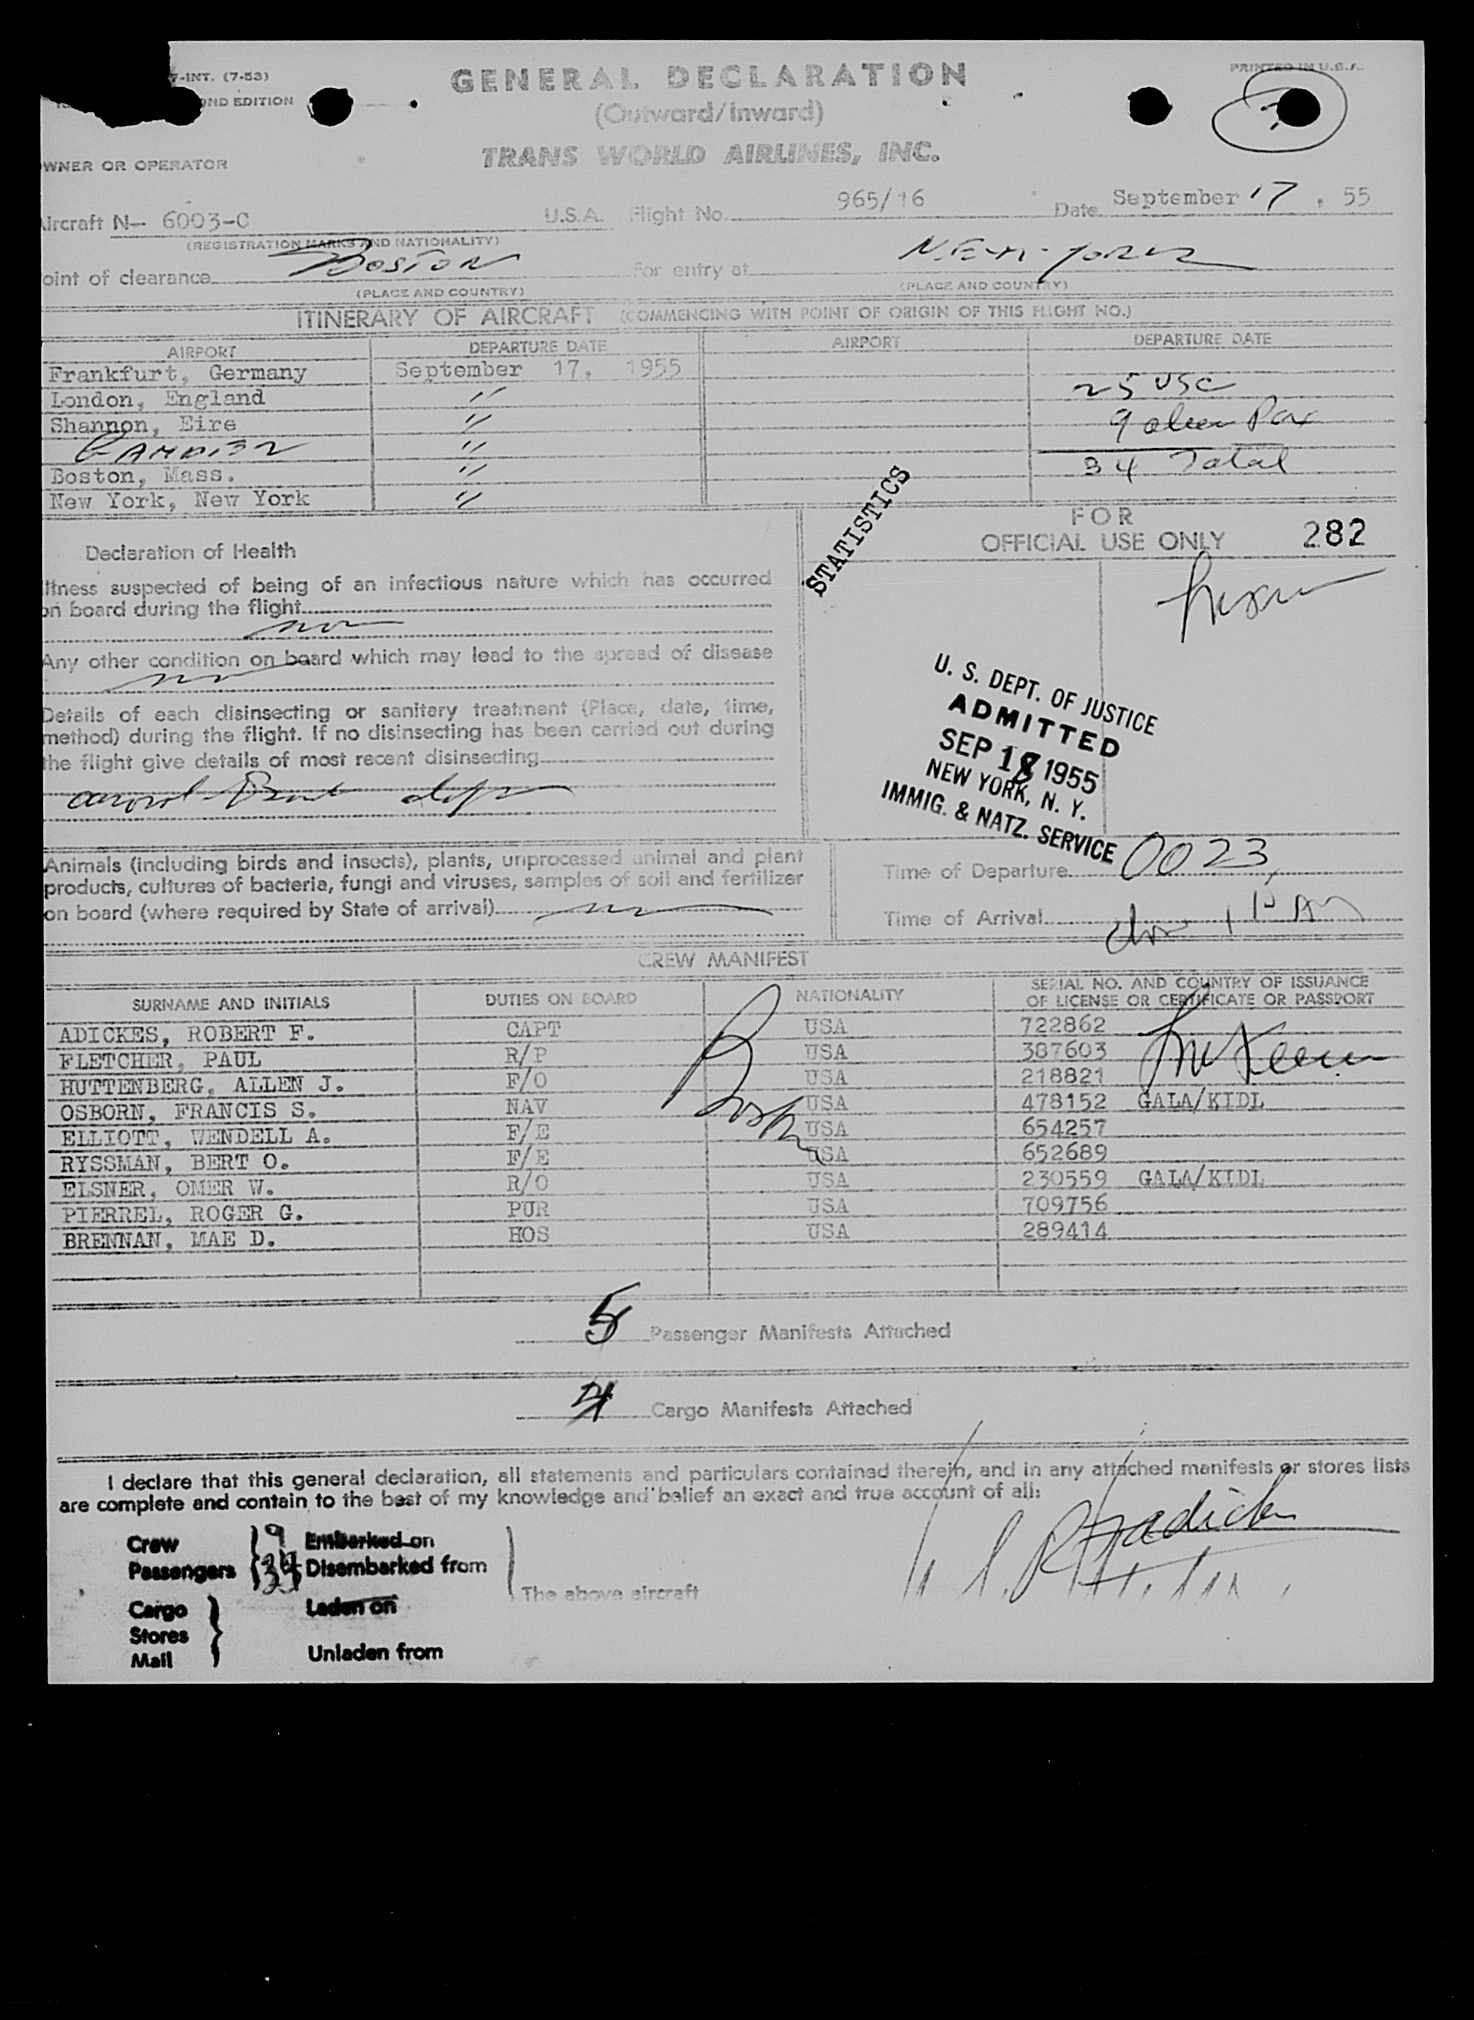 7-INT. (7-53)
OND EDITION
GENERAL DECLARATION
PRINTED IN U.S.A.
(Outward/Inward)
TRANS WORLD AIRLINES, INC.
WNER OR OPERATOR
ircraft N— 6003-C U.S.A. Flight No. 965/16 Date September 17, 55
(REGISTRATION MARKS AND NATIONALITY)
oint of clearance BOSTON For entry at NEW-YORK
(PLACE AND COUNTRY) (PLACE AND COUNTRY)
ITINERARY OF AIRCRAFT (COMMENCING WITH POINT OF ORIGIN OF THIS FLIGHT NO.)
AIRPORT DEPARTURE DATE AIRPORT DEPARTURE DATE
Frankfurt, Germany September 17, 1955
London, England " 25 USC
Shannon, Eire " 9 alien Pax
GANDER "
Boston, Mass. " 34 Total
New York, New York "
STATISTICS
FOR
OFFICIAL USE ONLY 282
Declaration of Health
Illness suspected of being of an infectious nature which has occurred
on board during the flight
no
Any other condition on board which may lead to the spread of disease
no
Details of each disinsecting or sanitary treatment (Place, date, time,
method) during the flight. If no disinsecting has been carried out during
the flight give details of most recent disinsecting
U. S. DEPT. OF JUSTICE
ADMITTED
SEP 18 1955
NEW YORK, N. Y.
IMMIG. & NATZ. SERVICE
Animals (including birds and insects), plants, unprocessed animal and plant
products, cultures of bacteria, fungi and viruses, samples of soil and fertilizer
on board (where required by State of arrival) no
Time of Departure 0023
Time of Arrival
CREW MANIFEST
SURNAME AND INITIALS DUTIES ON BOARD NATIONALITY SERIAL NO. AND COUNTRY OF ISSUANCE
OF LICENSE OR CERTIFICATE OR PASSPORT
ADICKES, ROBERT F. CAPT USA 722862
FLETCHER, PAUL R/P USA 387603
HUTTENBERG, ALLEN J. F/O USA 218821
OSBORN, FRANCIS S. NAV USA 478152 GALA/KIDL
ELLIOTT, WENDELL A. F/E USA 654257
RYSSMAN, BERT O. F/E USA 652689
ELSNER, OMER W. R/O USA 230559 GALA/KIDL
PIERREL, ROGER G. PUR USA 709756
BRENNAN, MAE D. HOS USA 289414
Boston
5 Passenger Manifests Attached
4 Cargo Manifests Attached
I declare that this general declaration, all statements and particulars contained therein, and in any attached manifests or stores lists
are complete and contain to the best of my knowledge and belief an exact and true account of all:
Crew 9 Embarked on
Passengers 34 Disembarked from
The above aircraft
Cargo Laden on
Stores
Mail Unladen from